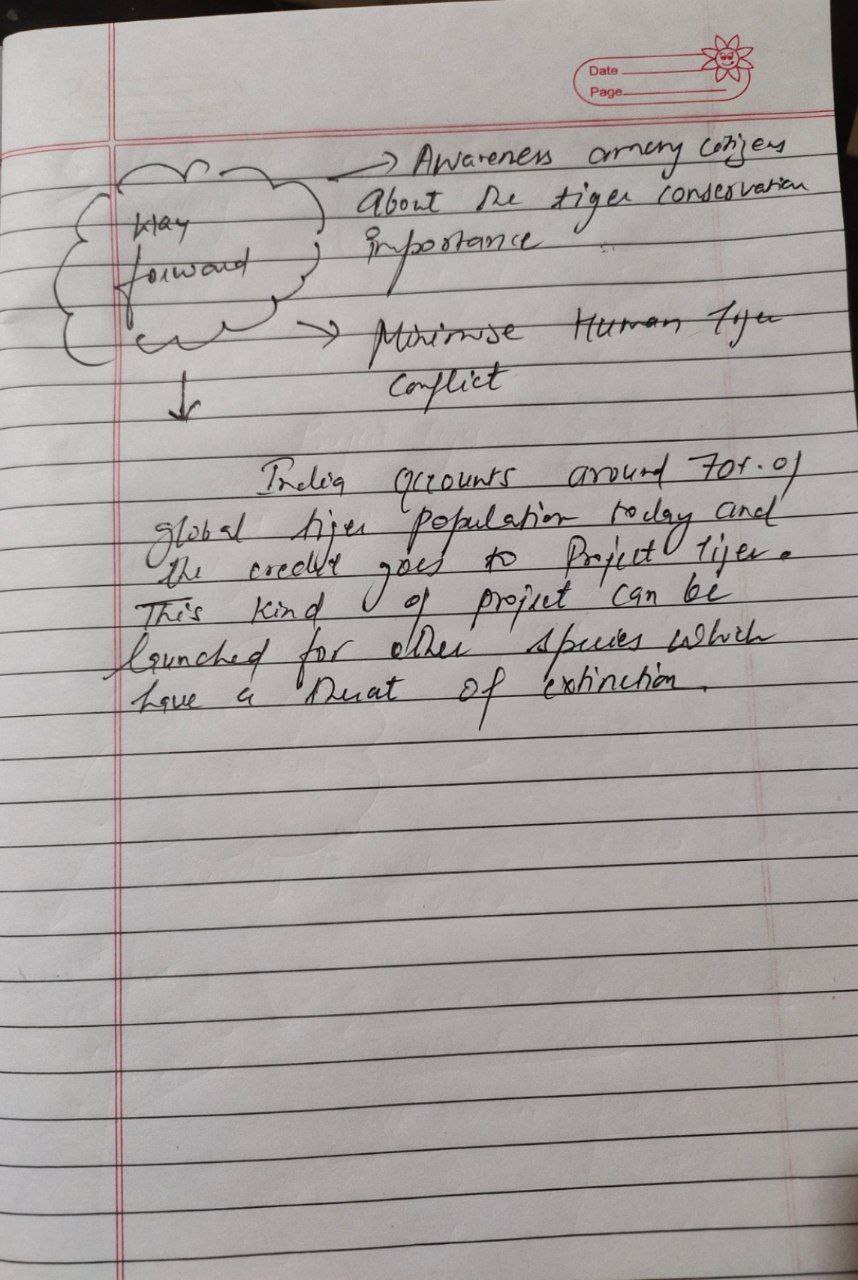 Date
Page
→ Awareness among citizens
About the tiger conservation
importance
Way
forward
→ Minimise Human Tiger
Conflict
↓
India accounts around 70% of
global tiger population today and
the credit goes to Project Tiger.
This kind of project can be
launched for other species which
have a threat of extinction.